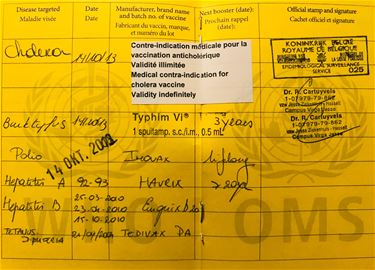 Disease targeted
Maladie visée
Date
Date
Manufacturer, brand name
and batch no. of vaccine
Fabricant du vaccin, marque,
et numéro du lot
Next booster (date):
Prochain rappel
(date):
Official stamp and signature
Cachet officiel et signature
Cholera
Contre-indication médicale pour la
vaccination anticholérique
Validité illimitée
Medical contra-indication for
cholera vaccine
Validity indefinitely
KONINKRIJK BELGIË
ROYAUME DE BELGIQUE
EPIDEMIOLOGICAL SURVEILLANCE
SERVICE
025
Dr. R. Cartuyvels
1-07979-79-862
Campus Virga Jesse
Buiktyfus
Typhim Vi®
1 spuitamp. s.c./i.m., 0.5 mL
3 years
Dr. R. Cartuyvels
1-07979-79-862
Campus Virga Jesse
Polio
14 OKT. 2002
Imovax
lifelong
Hepatitis A 92-93 Havrix
Hepatitis B 25-03-2010
23-04-2010
15-10-2010
Engerix B
Tetanus
Tedivax PA
WHO OMS